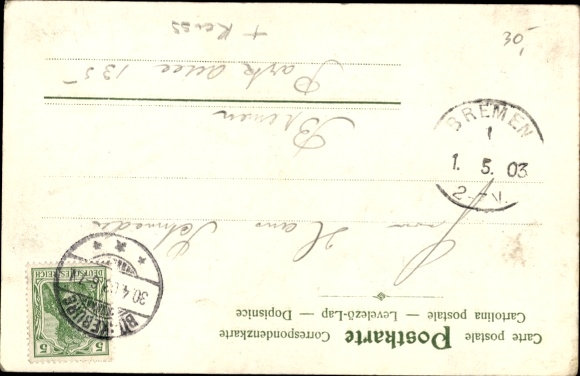 Carte postale — Correspondenzkarte
Postkarte
Cartolina postale — Levelező-Lap — Dopisnice
DEUTSCHES REICH
5
5
BÜCKEBURG
30.4.03
BREMEN
1
1. 5. 03
2-3V.
Hans
Bremen
Park allee 135
03